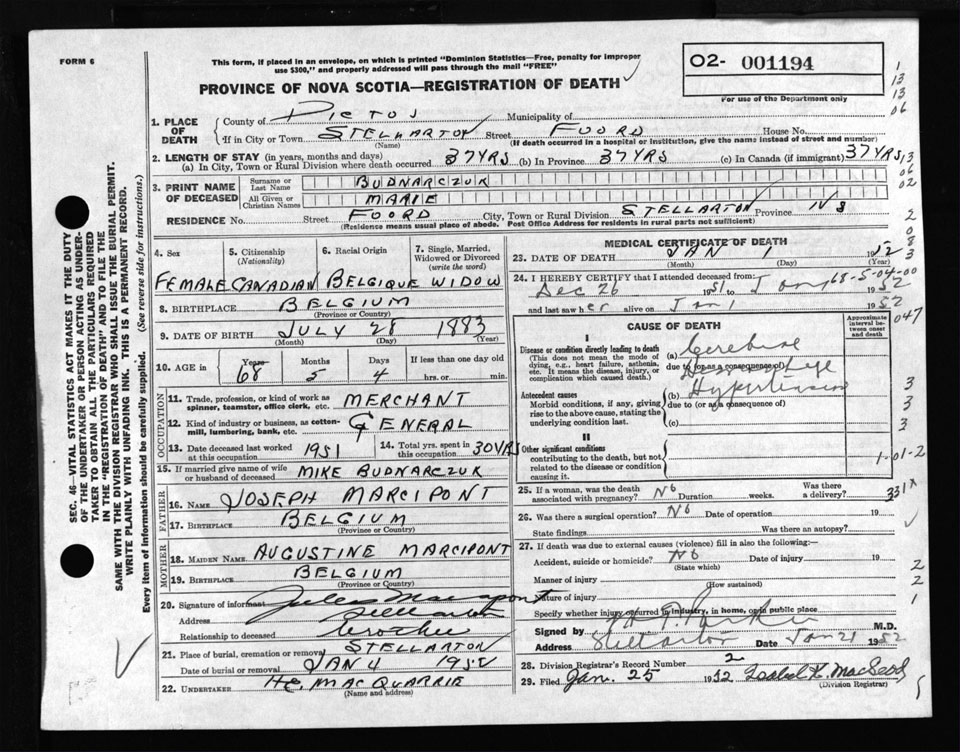 FORM 6
This form, if placed in an envelope, on which is printed "Dominion Statistics—Free, penalty for improper
use $300," and properly addressed will pass through the mail "FREE"
O2- 001194
For use of the Department only
PROVINCE OF NOVA SCOTIA—REGISTRATION OF DEATH
1. PLACE OF DEATH
County of PICTOU Municipality of
If in City or Town STELLARTON Street FOORD House No.
(Name) (If death occurred in a hospital or institution, give the name instead of street and number)
2. LENGTH OF STAY (in years, months and days)
(a) In City, Town or Rural Division where death occurred 37 YRS (b) In Province 37 YRS (c) In Canada (if immigrant) 37 YRS
3. PRINT NAME OF DECEASED
Surname or Last Name BUDNARCZUK
All Given or Christian Names MARIE
RESIDENCE No. Street FOORD City, Town or Rural Division STELLARTON Province NS
(Residence means usual place of abode. Post Office Address for residents in rural parts not sufficient)
4. Sex 5. Citizenship (Nationality) 6. Racial Origin 7. Single, Married, Widowed or Divorced (write the word)
FEMALE CANADIAN BELGIQUE WIDOW
8. BIRTHPLACE BELGIUM
(Province or Country)
9. DATE OF BIRTH JULY 28 1883
(Month) (Day) (Year)
10. AGE in Years Months Days If less than one day old
68 5 4 hrs. or min.
OCCUPATION
11. Trade, profession, or kind of work as spinner, teamster, office clerk, etc. MERCHANT
12. Kind of industry or business, as cotton-mill, lumbering, bank, etc. GENERAL
13. Date deceased last worked at this occupation 1951 14. Total yrs. spent in this occupation 30 YRS
15. If married give name of wife or husband of deceased MIKE BUDNARCZUK
FATHER
16. NAME JOSEPH MARCIPONT
17. BIRTHPLACE BELGIUM
(Province or Country)
MOTHER
18. MAIDEN NAME AUGUSTINE MARCIPONT
19. BIRTHPLACE BELGIUM
(Province or Country)
20. Signature of informant Jules Marcipont
Address Stellarton
Relationship to deceased brother
21. Place of burial, cremation or removal STELLARTON
Date of burial or removal JAN 4 1952
22. UNDERTAKER H.C. MACQUARRIE
(Name and address)
MEDICAL CERTIFICATE OF DEATH
23. DATE OF DEATH JAN 1 1952
(Month) (Day) (Year)
24. I HEREBY CERTIFY that I attended deceased from:
Dec 26 1951 to Jan 1 1952
68-5-04-00
and last saw her alive on Jan 1 1952
CAUSE OF DEATH
Approximate interval between onset and death
I
Disease or condition directly leading to death (a) Cerebral
(This does not mean the mode of dying, e.g., heart failure, asthenia, etc. It means the disease, injury, or complication which caused death.)
due to (or as a consequence of) Hemorrhage
Antecedent causes (b) Hypertension
Morbid conditions, if any, giving rise to the above cause, stating the underlying condition last.
due to (or as a consequence of)
(c)
II
Other significant conditions
contributing to the death, but not related to the disease or condition causing it.
25. If a woman, was the death associated with pregnancy? No Duration weeks. Was there a delivery?
26. Was there a surgical operation? No Date of operation 19
State findings Was there an autopsy?
27. If death was due to external causes (violence) fill in also the following:
Accident, suicide or homicide? No Date of injury 19
(State which)
Manner of injury
(How sustained)
Nature of injury
Specify whether injury occurred in industry, in home, or in public place
Signed by Parker M.D.
Address Stellarton Date Jan 21 1952
28. Division Registrar's Record Number 2
29. Filed Jan. 25 1952 Isabel K. MacLeod
(Division Registrar)
SEC. 46—VITAL STATISTICS ACT MAKES IT THE DUTY
OF THE UNDERTAKER OR PERSON ACTING AS UNDER-
TAKER TO OBTAIN ALL THE PARTICULARS REQUIRED
IN THE "REGISTRATION OF DEATH" AND TO FILE THE
SAME WITH THE DIVISION REGISTRAR WHO SHALL ISSUE THE BURIAL PERMIT.
WRITE PLAINLY WITH UNFADING INK. THIS IS A PERMANENT RECORD.
Every item of information should be carefully supplied. (See reverse side for instructions.)
1
13
13
06
13
06
02
2
0
8
3
047
3
3
3
1-01-2
331X
2
2
1